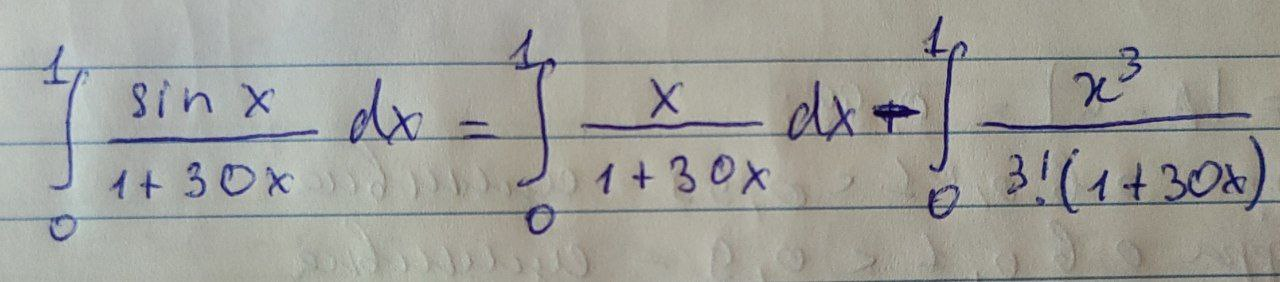 ∫₀¹ sin x / (1 + 30x) dx = ∫₀¹ x / (1 + 30x) dx - ∫₀¹ x³ / (3!(1 + 30x))